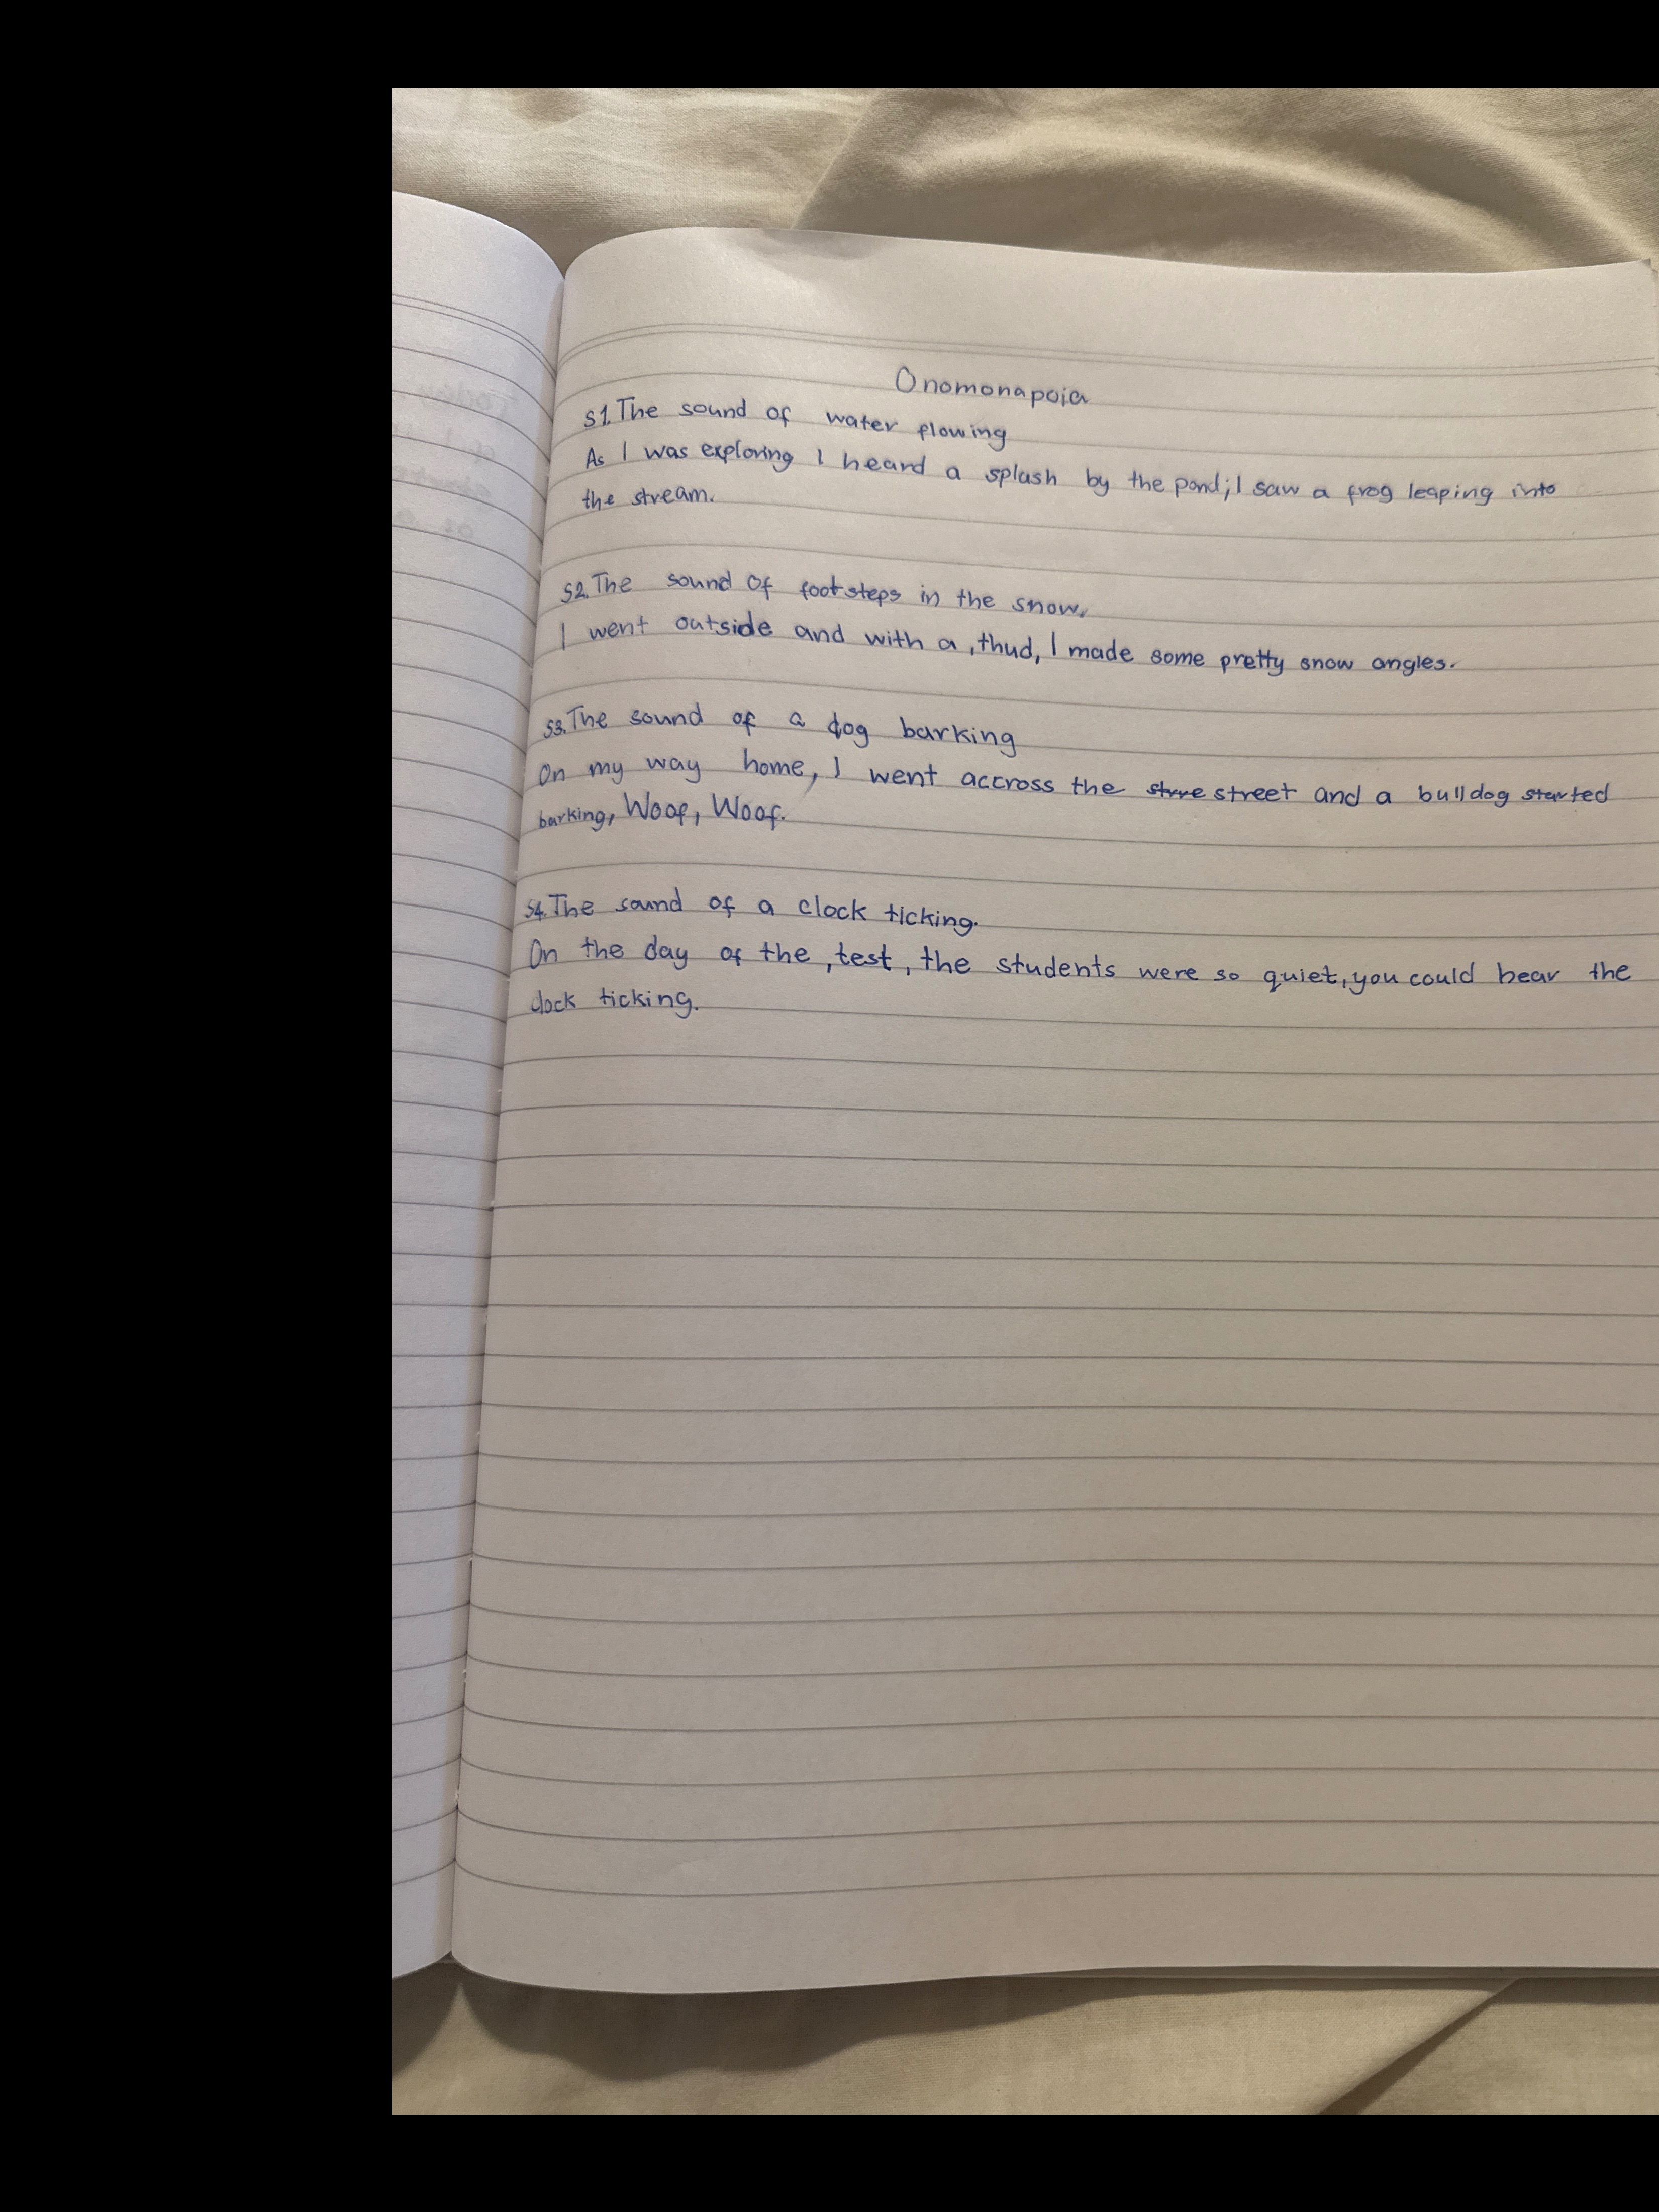 Onomonapoia
S1. The sound of water flowing
As I was exploring I heard a splash by the pond; I saw a frog leaping into
the stream.
S2. The sound Of footsteps in the snow.
I went outside and with a ,thud, I made some pretty snow angles.
S3. The sound of a dog barking
On my way home, I went accross the street and a bulldog started
barking, Woof, Woof.
S4. The sound of a clock ticking.
On the day of the ,test, the students were so quiet, you could hear the
clock ticking.